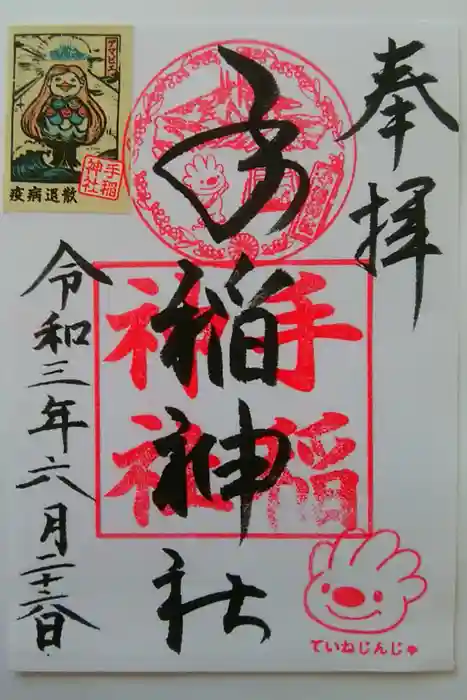 奉拝
手稲神社
令和三年六月二十六日
手稲
神社
アマビエ
手稲
神社
疫病退散
ていねじんじゃ